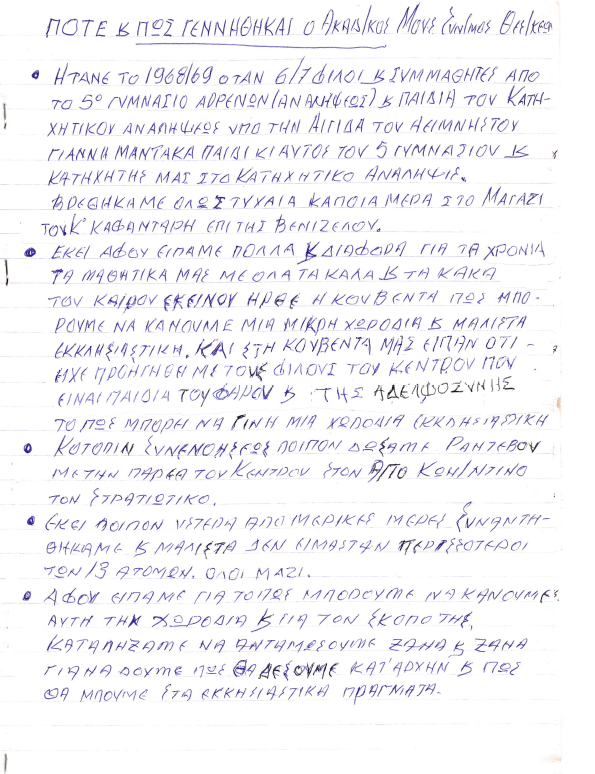 ΠΟΤΕ & ΠΩΣ ΓΕΝΝΗΘΗΚΑΙ Ο ΑΚΑΔ/ΚΟΣ ΜΟΥΣ
• ΗΤΑΝΕ ΤΟ 1968/69 ΟΤΑΝ 6/7 ΦΙΛΟΙ & ΣΥΜΜΑΘΗΤΕΣ ΑΠΟ
ΤΟ 5º ΓΥΜΝΑΣΙΟ ΑΡΡΕΝΩΝ (ΑΝΑΛΗΨΕΩΣ) & ΠΑΙΔΙΑ ΤΟΥ ΚΑΤΗ-
ΧΗΤΙΚΟΥ ΑΝΑΛΗΨΕΩΣ ΥΠΟ ΤΗΝ ΑΙΓΙΔΑ ΤΟΥ ΑΕΙΜΝΗΣΤΟΥ
ΓΙΑΝΝΗ ΜΑΝΤΑΚΑ ΠΑΙΔΙ ΚΙ ΑΥΤΟΣ ΤΟΥ 5 ΓΥΜΝΑΣΙΟΥ &
ΚΑΤΗΧΗΤΗΣ ΜΑΣ ΣΤΟ ΚΑΤΗΧΗΤΙΚΟ ΑΝΑΛΗΨΙΣ.
ΒΡΕΘΗΚΑΜΕ ΟΛΩΣ ΤΥΧΑΙΑ ΚΑΠΟΙΑ ΜΕΡΑ ΣΤΟ ΜΑΓΑΖΙ
ΤΟΥ Κ ΚΑΦΑΝΤΑΡΗ ΕΠΙ ΤΗΣ ΒΕΝΙΖΕΛΟΥ.
• ΕΚΕΙ ΑΦΟΥ ΕΙΠΑΜΕ ΠΟΛΛΑ & ΔΙΑΦΟΡΑ ΓΙΑ ΤΑ ΧΡΟΝΙΑ
ΤΑ ΜΑΘΗΤΙΚΑ ΜΑΣ ΜΕ ΟΛΑ ΤΑ ΚΑΛΑ & ΤΑ ΚΑΚΑ
ΤΟΥ ΚΑΙΡΟΥ ΕΚΕΙΝΟΥ ΗΡΘΕ Η ΚΟΥΒΕΝΤΑ ΠΩΣ ΜΠΟ-
ΡΟΥΜΕ ΝΑ ΚΑΝΟΥΜΕ ΜΙΑ ΜΙΚΡΗ ΧΩΡΟΔΙΑ & ΜΑΛΙΣΤΑ
ΕΚΚΛΗΣΙΑΣΤΙΚΗ. ΚΑΙ ΣΤΗ ΚΟΥΒΕΝΤΑ ΜΑΣ ΕΙΠΑΝ ΟΤΙ -
ΕΙΧΕ ΠΡΟΗΓΗΘΗ ΜΕ ΤΟΥΣ ΦΙΛΟΥΣ ΤΟΥ ΚΕΝΤΡΟΥ ΠΟΥ
ΕΙΝΑΙ ΠΑΙΔΙΑ ΤΟΥ ΦΑΡΟΥ & ΤΗΣ ΑΔΕΛΦΟΣΥΝΗΣ
ΤΟ ΠΩΣ ΜΠΟΡΕΙ ΝΑ ΓΙΝΗ ΜΙΑ ΧΩΡΟΔΙΑ ΕΚΚΛΗΣΙΑΣΤΙΚΗ
• ΚΟΤΟΠΙΝ ΣΥΝΕΝΟΗΣΕΩΣ ΛΟΙΠΟΝ ΔΩΣΑΜΕ ΡΑΝΤΕΒΟΥ
ΜΕ ΤΗΝ ΠΑΡΕΑ ΤΟΥ ΚΕΝΤΡΟΥ ΣΤΟΝ ΑΓΙΟ ΚΩΝ/ΝΤΙΝΟ
ΤΟΝ ΣΤΡΑΤΙΩΤΙΚΟ.
• ΕΚΕΙ ΛΟΙΠΟΝ ΥΣΤΕΡΑ ΑΠΟ ΜΕΡΙΚΕΣ ΜΕΡΕΣ ΣΥΝΑΝΤΗ-
ΘΗΚΑΜΕ & ΜΑΛΙΣΤΑ ΔΕΝ ΕΙΜΑΣΤΑΝ ΠΕΡΙΣΣΟΤΕΡΟΙ
ΤΩΝ 13 ΑΤΟΜΩΝ. ΟΛΟΙ ΜΑΖΙ.
• ΑΦΟΥ ΕΙΠΑΜΕ ΓΙΑ ΤΟ ΠΩΣ ΜΠΟΡΟΥΜΕ ΝΑ ΚΑΝΟΥΜΕ
ΑΥΤΗ ΤΗΝ ΧΩΡΟΔΙΑ & ΓΙΑ ΤΟΝ ΣΚΟΠΟ ΤΗΣ,
ΚΑΤΑΛΗΞΑΜΕ ΝΑ ΑΝΤΑΜΩΣΟΥΜΕ ΞΑΝΑ & ΞΑΝΑ
ΓΙΑ ΝΑ ΔΟΥΜΕ ΠΩΣ ΘΑ ΔΕΣΟΥΜΕ ΚΑΤ'ΑΡΧΗΝ & ΠΩΣ
ΘΑ ΜΠΟΥΜΕ ΣΤΑ ΕΚΚΗΣΙΑΣΤΙΚΑ ΠΡΑΓΜΑΤΑ.